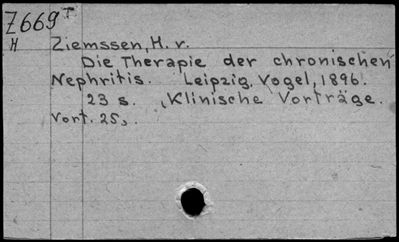 Z669 T
H
Ziemssen, H. v.
Die Therapie der chronischen
Nephritis. Leipzig, Vogel, 1896.
23 s. (Klinische Vorträge.
Vort. 25).